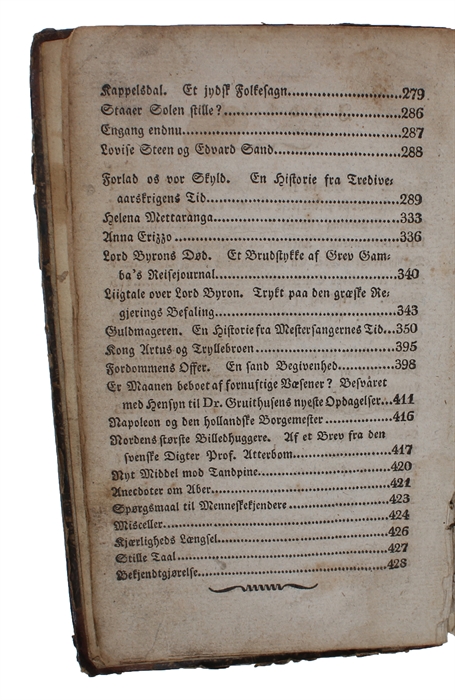 Kappelsdal. Et jydsk Folkesagn..................279
Staaer Solen stille?..................286
Engang endnu..................287
Lovise Steen og Edvard Sand..................288
Forlad os vor Skyld. En Historie fra Tredive-
aarskrigens Tid..................289
Helena Mettaranga..................333
Anna Erizzo..................336
Lord Byrons Død. Et Brudstykke af Grev Gam-
ba's Reisejournal..................340
Liigtale over Lord Byron. Trykt paa den græske Re-
gjerings Befaling..................343
Guldmageren. En Historie fra Mestersangernes Tid...350
Kong Artus og Tryllebroen..................395
Fordommens Offer. En sand Begivenhed..................398
Er Maanen beboet af fornuftige Væsener? Besvaret
med Hensyn til Dr. Gruithusens nyeste Opdagelser...411
Napoleon og den hollandske Borgemester..................416
Nordens største Billedhuggere. Af et Brev fra den
svenske Digter Prof. Atterbom..................417
Nyt Middel mod Tandpine..................420
Anecdoter om Aber..................421
Spørgsmaal til Menneskekjendere..................423
Misceller..................424
Kjærligheds Længsel..................426
Stille Taal..................427
Bekjendtgjørelse..................428